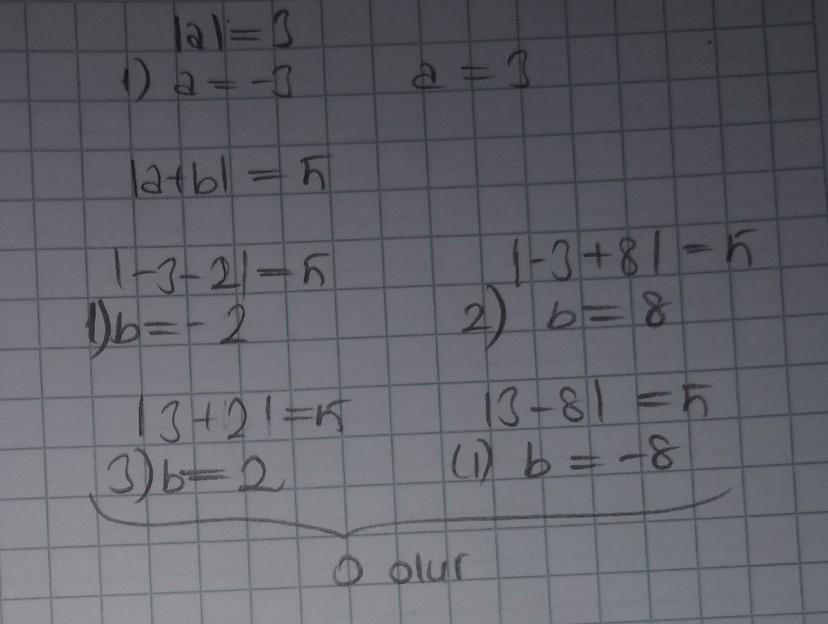 |a| = 3
1) a = -3 a = 3
|a+b| = 5
|-3-2| = 5 |-3+8| = 5
1) b = -2 2) b = 8
|3+2| = 5 |3-8| = 5
3) b = 2 (1) b = -8
0 olur